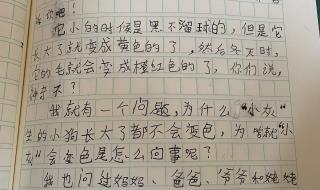 你吧！
它小的时候是黑不溜球的，但是它
长大了就变成黄色的了，然后冬天时，
它的毛就会变成橙红色的了，你们说，
神奇不？
我就有一个问题，为什么"小灰"
生的小狗长大了都不会变色，为啥就"小
灰"会变色是怎么回事呢？
我也问过妈妈、爸爸、爷爷和姥姥